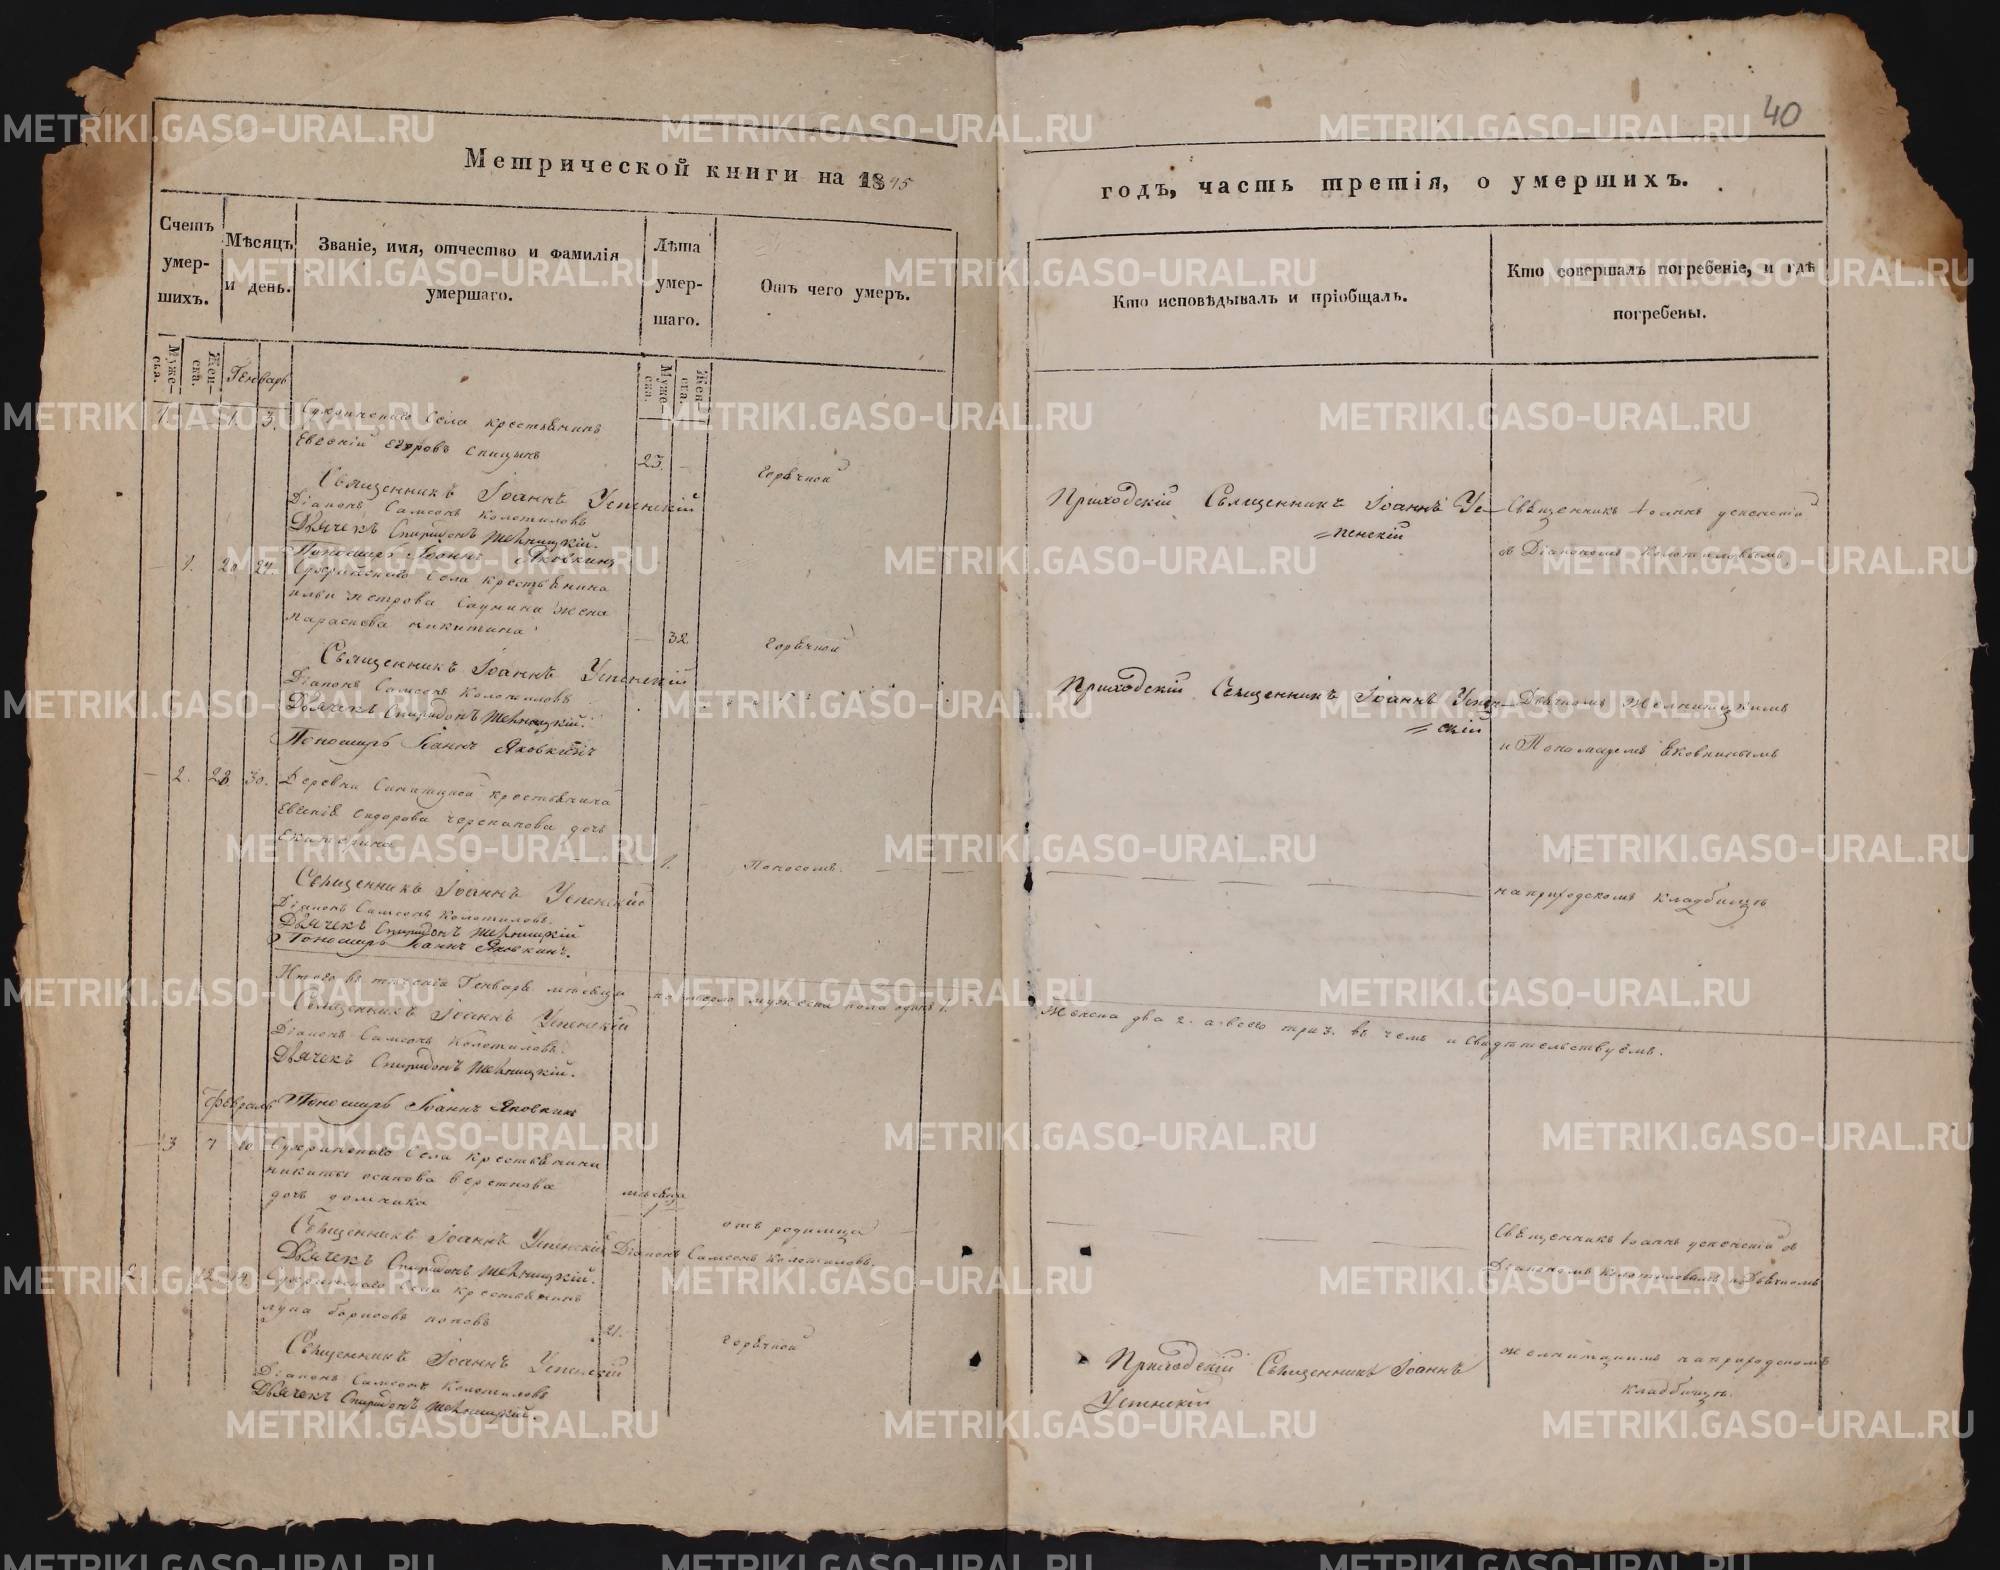 40
Метрической книги на 1845
годъ, часть третія, о умершихъ.
Счетъ умер- шихъ.
Мѣсяцъ и день.
Званіе, имя, отчество и фамилія умершаго.
Лѣта умер- шаго.
Отъ чего умеръ.
Кто исповѣдывалъ и пріобщалъ.
Кто совершалъ погребеніе, и гдѣ погребены.
Муже- ска.
Жен- ска.
Генварь
Муже- ска.
Жен- ска.
1. — 1. 3.
села крестьянинъ
Егоровъ Спицынъ
23. —
Горячкой
Священникъ Іоаннъ Успенскій
Діаконъ Самсонъ Колотиловъ
Дьячекъ Спиридонъ
Пономарь Іоаннъ Яковкинъ
Приходскій Священникъ Іоаннъ Ус-
=пенскій
Священникъ Іоаннъ Успенскій
с Діакономъ Колотиловымъ
— 1. 20 24
села крестьянина
Ильи Петрова Саунина жена
Параскева Никитина
— 32
Горячкой
Священникъ Іоаннъ Успенскій
Діаконъ Самсонъ Колотиловъ
Дьячекъ Спиридонъ
Пономарь Іоаннъ Яковкинъ
Приходскій Священникъ Іоаннъ Успен-
=скій
Дьячкомъ
и Пономаремъ Яковкинымъ
— 2. 28 30.
Деревни крестьянина
Сидорова Черепанова дочь
Екатерина
— 1.
Поносомъ.
на приходскомъ кладбищѣ
Священникъ Іоаннъ Успенскій
Діаконъ Самсонъ Колотиловъ.
Дьячекъ Спиридонъ
Пономарь Іоаннъ Яковкинъ.
Итого въ теченіи Генваря мѣсяца померло мужеска пола одинъ 1.
женска два 2. а всего три 3. въ чемъ и свидѣтельствуемъ.
Священникъ Іоаннъ Успенскій
Діаконъ Самсонъ Колотиловъ.
Дьячекъ Спиридонъ
Пономарь Іоаннъ Яковкинъ
Февраль
— 3 7 10.
Сухринскаго села крестьянина
Никиты Осипова
дочь Домника
мѣсяца
отъ родимца
Священникъ Іоаннъ Успенскій Діаконъ Самсонъ Колотиловъ.
Дьячекъ Спиридонъ
Священникъ Іоаннъ Успенскій с
Діакономъ Колотиловымъ и Дьячкомъ
2 — 12 14.
Сухринскаго села крестьянинъ
Лупа Борисовъ Поповъ
21.
Горячкой
Священникъ Іоаннъ Успенскій
Діаконъ Самсонъ Колотиловъ
Дьячекъ Спиридонъ
Приходскій Священникъ Іоаннъ
Успенскій
на приходскомъ
кладбищѣ.
METRIKI.GASO-URAL.RU